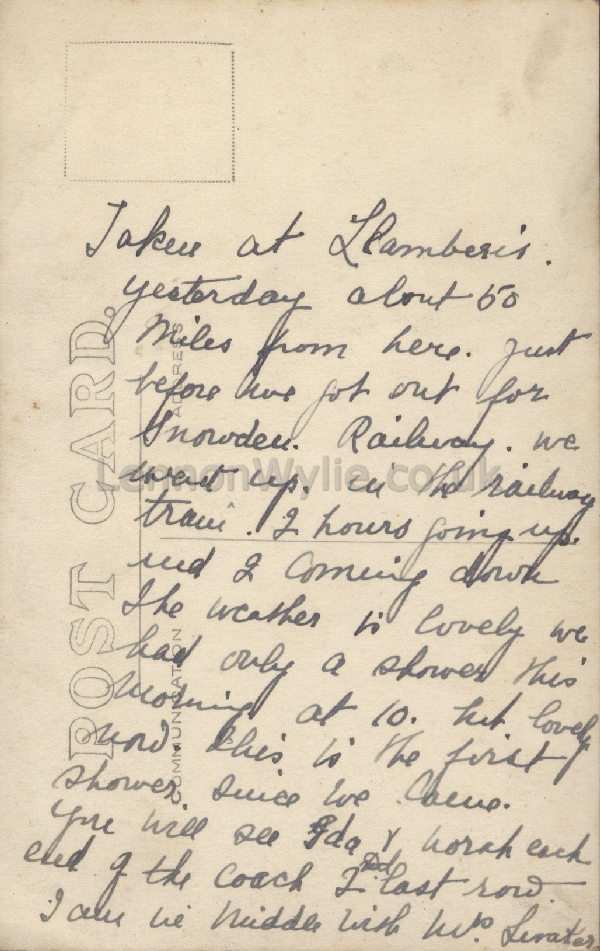 Taken at Llamberis.
yesterday about 50
miles from here. just
before we got out for
Snowden. Railway. we
went up. in the railway
train. 2 hours going up.
and 2 coming down
The weather is lovely we
had only a shower this
morning at 10. but lovely
now this is the first
shower since we came.
You will see Ida & Norah each
end of the coach 2nd last row.
I am in middle with Mrs
POST CARD.
COMMUNICATION
ADDRESS
LennonWylie.co.uk